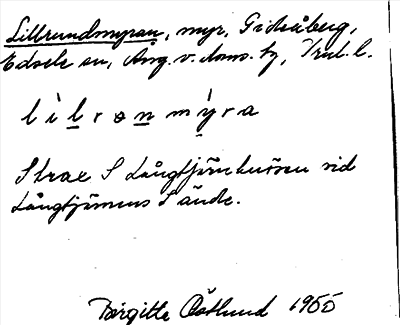 Lillrundmyran, myr, Gideåberg,
Edsele sn, Ång. v. doms. tg, Vnl. l.
lìlronmýra
Strax S Långtjärnkurssen vid
Långtjärnens S ände.
Birgitte Östlund 1955